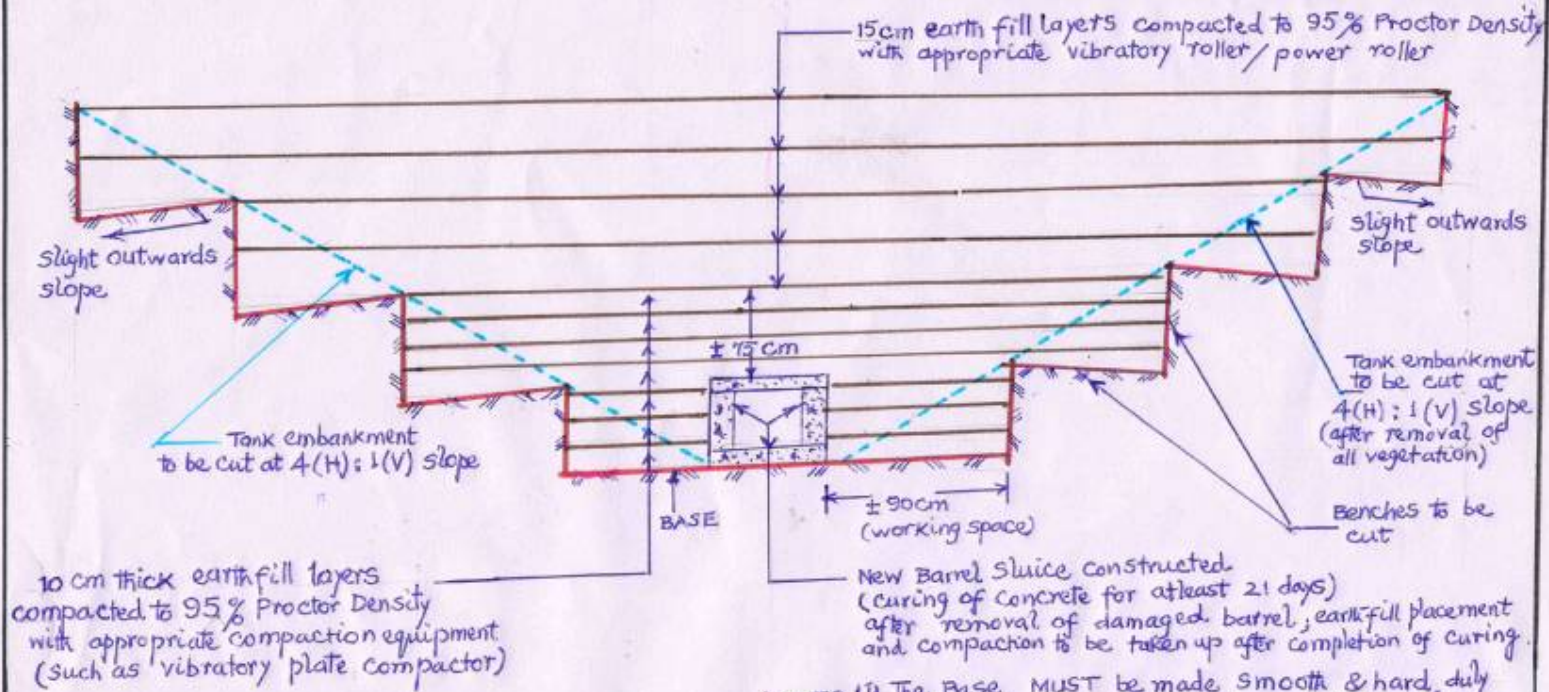 15cm earth fill layers compacted to 95% Proctor Density
with appropriate vibratory roller/power roller
Slight outwards
slope
slight outwards
slope
± 75 cm
Tank embankment
to be cut at 4(H):1(V) slope
Tank embankment
to be cut at
4(H):1(V) slope
(after removal of
all vegetation)
BASE
± 90cm
(working space)
Benches to be
cut
10 cm thick earthfill layers
compacted to 95% Proctor Density
with appropriate compaction equipment
(such as vibratory plate compactor)
New Barrel Sluice constructed
(curing of concrete for atleast 21 days)
after removal of damaged barrel, earthfill placement
and compaction to be taken up after completion of curing.
The Base MUST be made smooth & hard, duly